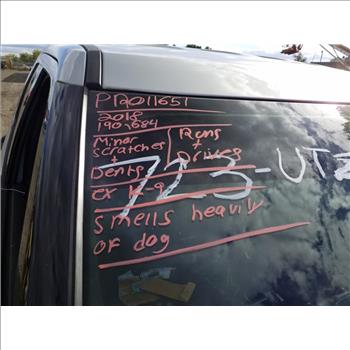 PR2011651
2018
190,684
Minor
Scratches
+
Dents
Runs
+
Drives
ex K-9
723-UTZ
Smells heavily
of dog